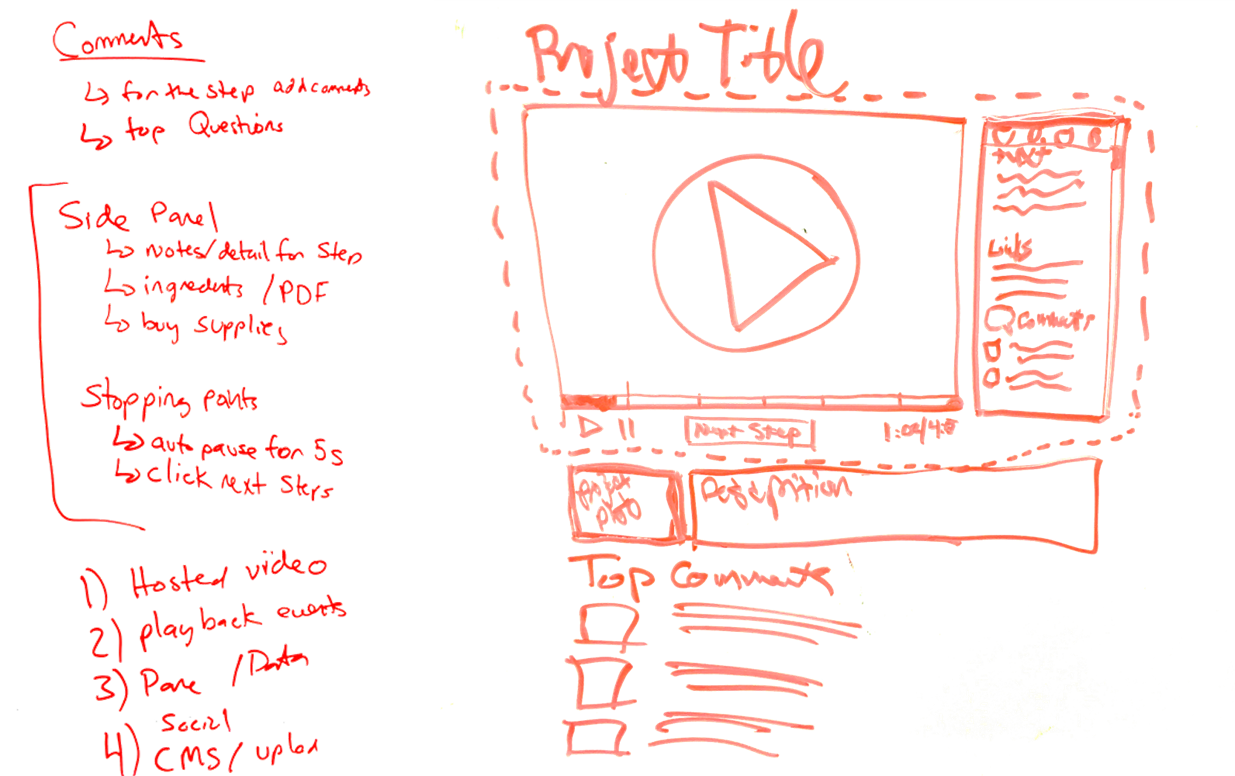 Comments
↳ for the step add comments
↳ top Questions
Side Panel
↳ notes/detail for Step
↳ ingredents /PDF
↳ buy supplies
Stopping points
↳ auto pause for 5s
↳ click next steps
1) Hosted video
2) playback events
3) Pane /Data
4) Social
CMS/upload
Project Title
text
Links
Comments
Next Step
1:02/4:
project
photo
Description
Top Comments